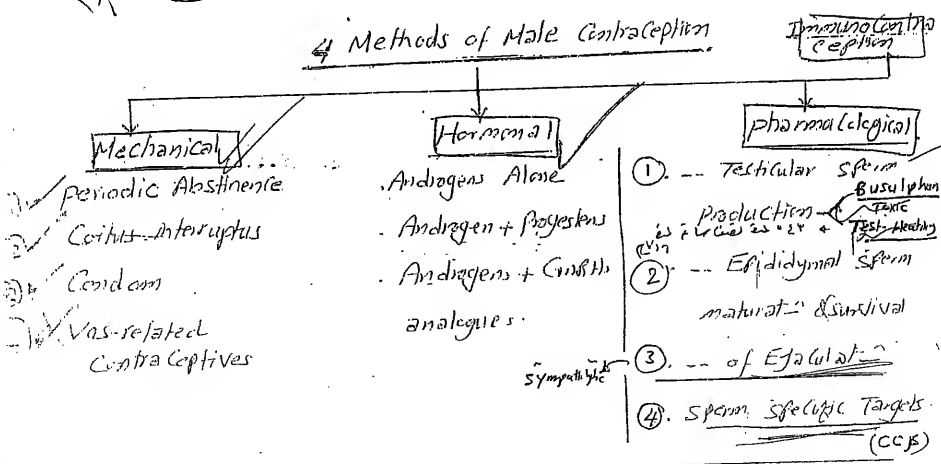 4 Methods of Male Contraception
Immunocontra
ception
Mechanical
Periodic Abstinence
Coitus Interruptus
Condom
Vas-related
Contraceptives
Hormonal
. Androgens Alone
. Androgen + Progestens
. Androgens + GnRH
analogues.
pharmacological
① . -- Testicular Sperm
Production
Busulphan
Toxic
Test-Heating
② . -- Epididymal Sperm
maturat= & survival
③ . -- of Ejaculat=
sympatholytic
④ . Sperm Specific Targets.